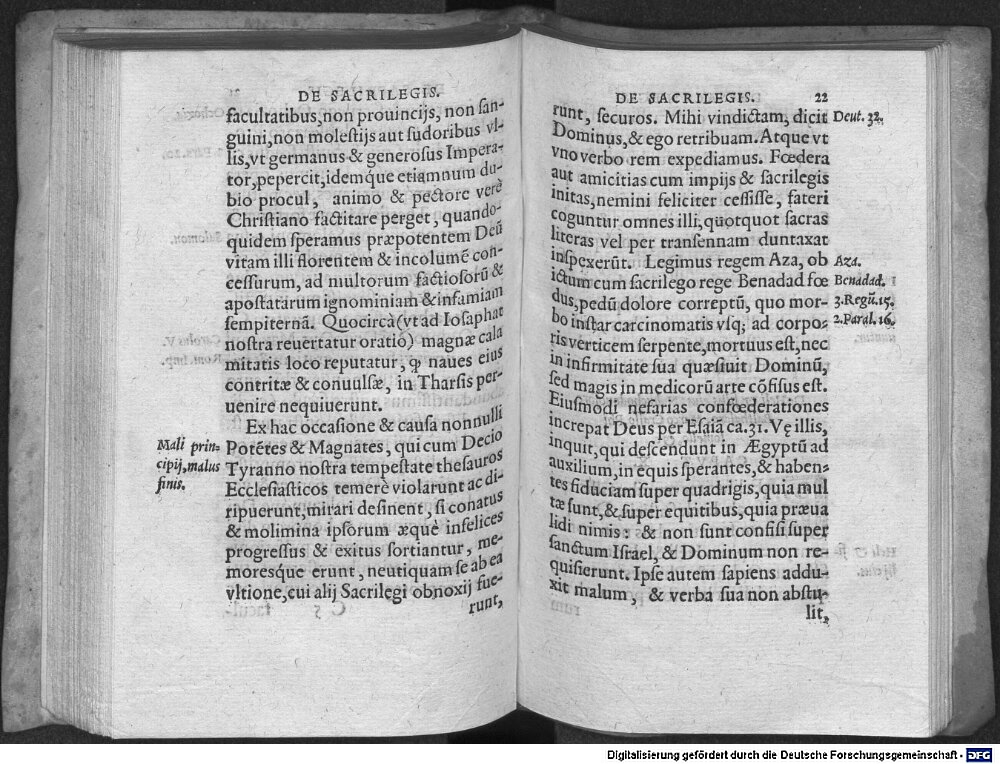 DE SACRILEGIS.
facultatibus, non prouincijs, non ſan-
guini, non moleſtijs aut ſudoribus vl-
lis, vt germanus & generoſus Impera-
tor, pepercit, idemq́ue etiamnum du-
bio procul, animo & pectore verè
Chriſtiano factitare perget, quando-
quidem ſperamus præpotentem Deū
vitam illi florentem & incolumē con-
ceſſurum, ad multorum factioſorū &
apoſtatarum ignominiam & infamiam
ſempiternā. Quocircà (vt ad Ioſaphat
noſtra reuertatur oratio) magnæ cala
mitatis loco reputatur, ꝙ naues eius
contritæ & conuulſæ, in Tharſis per-
uenire nequiuerunt.
Ex hac occaſione & cauſa nonnulli
Mali prin-
cipij, malus
finis.
Potētes & Magnates, qui cum Decio
Tyranno noſtra tempeſtate theſauros
Eccleſiaſticos temerè violarunt ac di-
ripuerunt, mirari deſinent, ſi conatus
& molimina ipſorum æquè infelices
progreſſus & exitus ſortiantur, me-
moresq́ue erunt, neutiquam ſe ab ea
vltione, cui alij Sacrilegi obnoxij fue-
runt,
DE SACRILEGIS. 22
runt, ſecuros. Mihi vindictam, dicit
Deut. 32.
Dominus, & ego retribuam. Atque vt
vno verbo rem expediamus. Fœdera
aut amicitias cum impijs & ſacrilegis
initas, nemini feliciter ceſſiſſe, fateri
coguntur omnes illi, quotquot ſacras
literas vel per tranſennam duntaxat
inſpexerūt. Legimus regem Aza, ob
Aza.
ictum cum ſacrilego rege Benadad fœ
Benadad.
dus, pedū dolore correptū, quo mor-
3. Regū. 15.
bo inſtar carcinomatis vſq; ad corpo-
2. Paral. 16.
ris verticem ſerpente, mortuus eſt, nec
in infirmitate ſua quæſiuit Dominū,
ſed magis in medicorū arte cōfiſus eſt.
Eiuſmodi nefarias confœderationes
increpat Deus per Eſaiā ca. 31. Vę illis,
inquit, qui deſcendunt in Ægyptū ad
auxilium, in equis ſperantes, & haben-
tes fiduciam ſuper quadrigis, quia mul
tæ ſunt, & ſuper equitibus, quia præua
lidi nimis: & non ſunt confiſi ſuper
ſanctum Iſrael, & Dominum non re-
quiſierunt. Ipſe autem ſapiens addu-
xit malum, & verba ſua non abſtu-
lit,
Digitalisierung gefördert durch die Deutsche Forschungsgemeinschaft - DFG